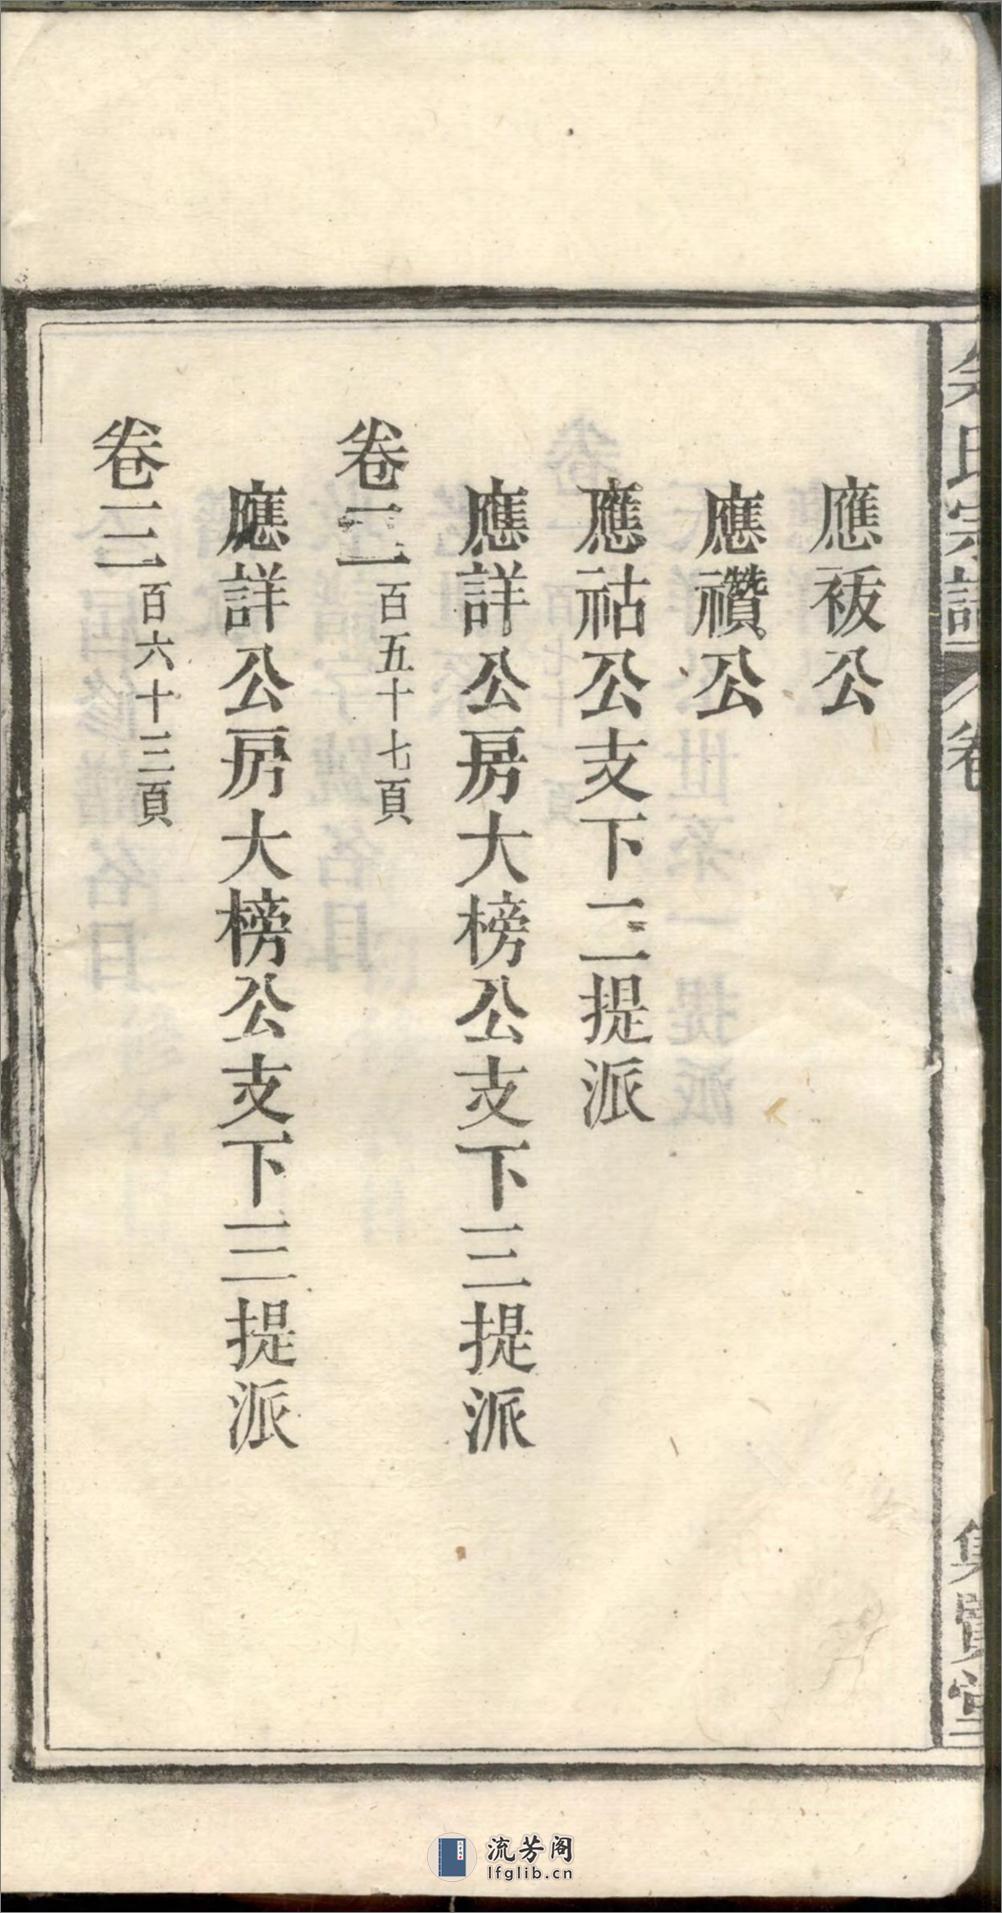 氏宗譜 卷
集賢堂
應祓公
應禶公
應祜公支下三提派
應詳公房大榜公支下三提派
卷二百五十七頁
應詳公房大榜公支下三提派
卷三百六十三頁
流芳阁
lfglib.cn